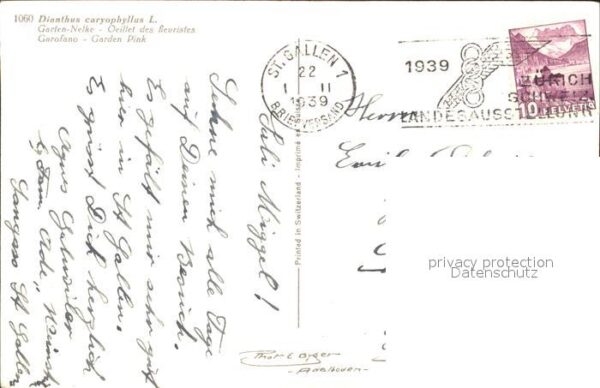 1060 Dianthus caryophyllus L.
Garten-Nelke - Oeillet des fleuristes
Garofano - Garden Pink
ST. GALLEN 1
22
1 II
1939
BRIEFVERSAND
1939
ZÜRICH
SCHWEIZ.
LANDESAUSSTELLUNG
10 HELVETIA
Printed in Switzerland - Imprimé en Suisse
Herrn
Emil
Sali Miggel!
Sehne mich alle Tage
auf Deinen Besuch.
Es gefällt mir sehr gut
hier in St. Gallen.
Es grüsst Dich herzlich
Agnes
b. Fam.
Langgass St. Gallen
privacy protection
Datenschutz
Phot. E. Gyger
- Adelboden -